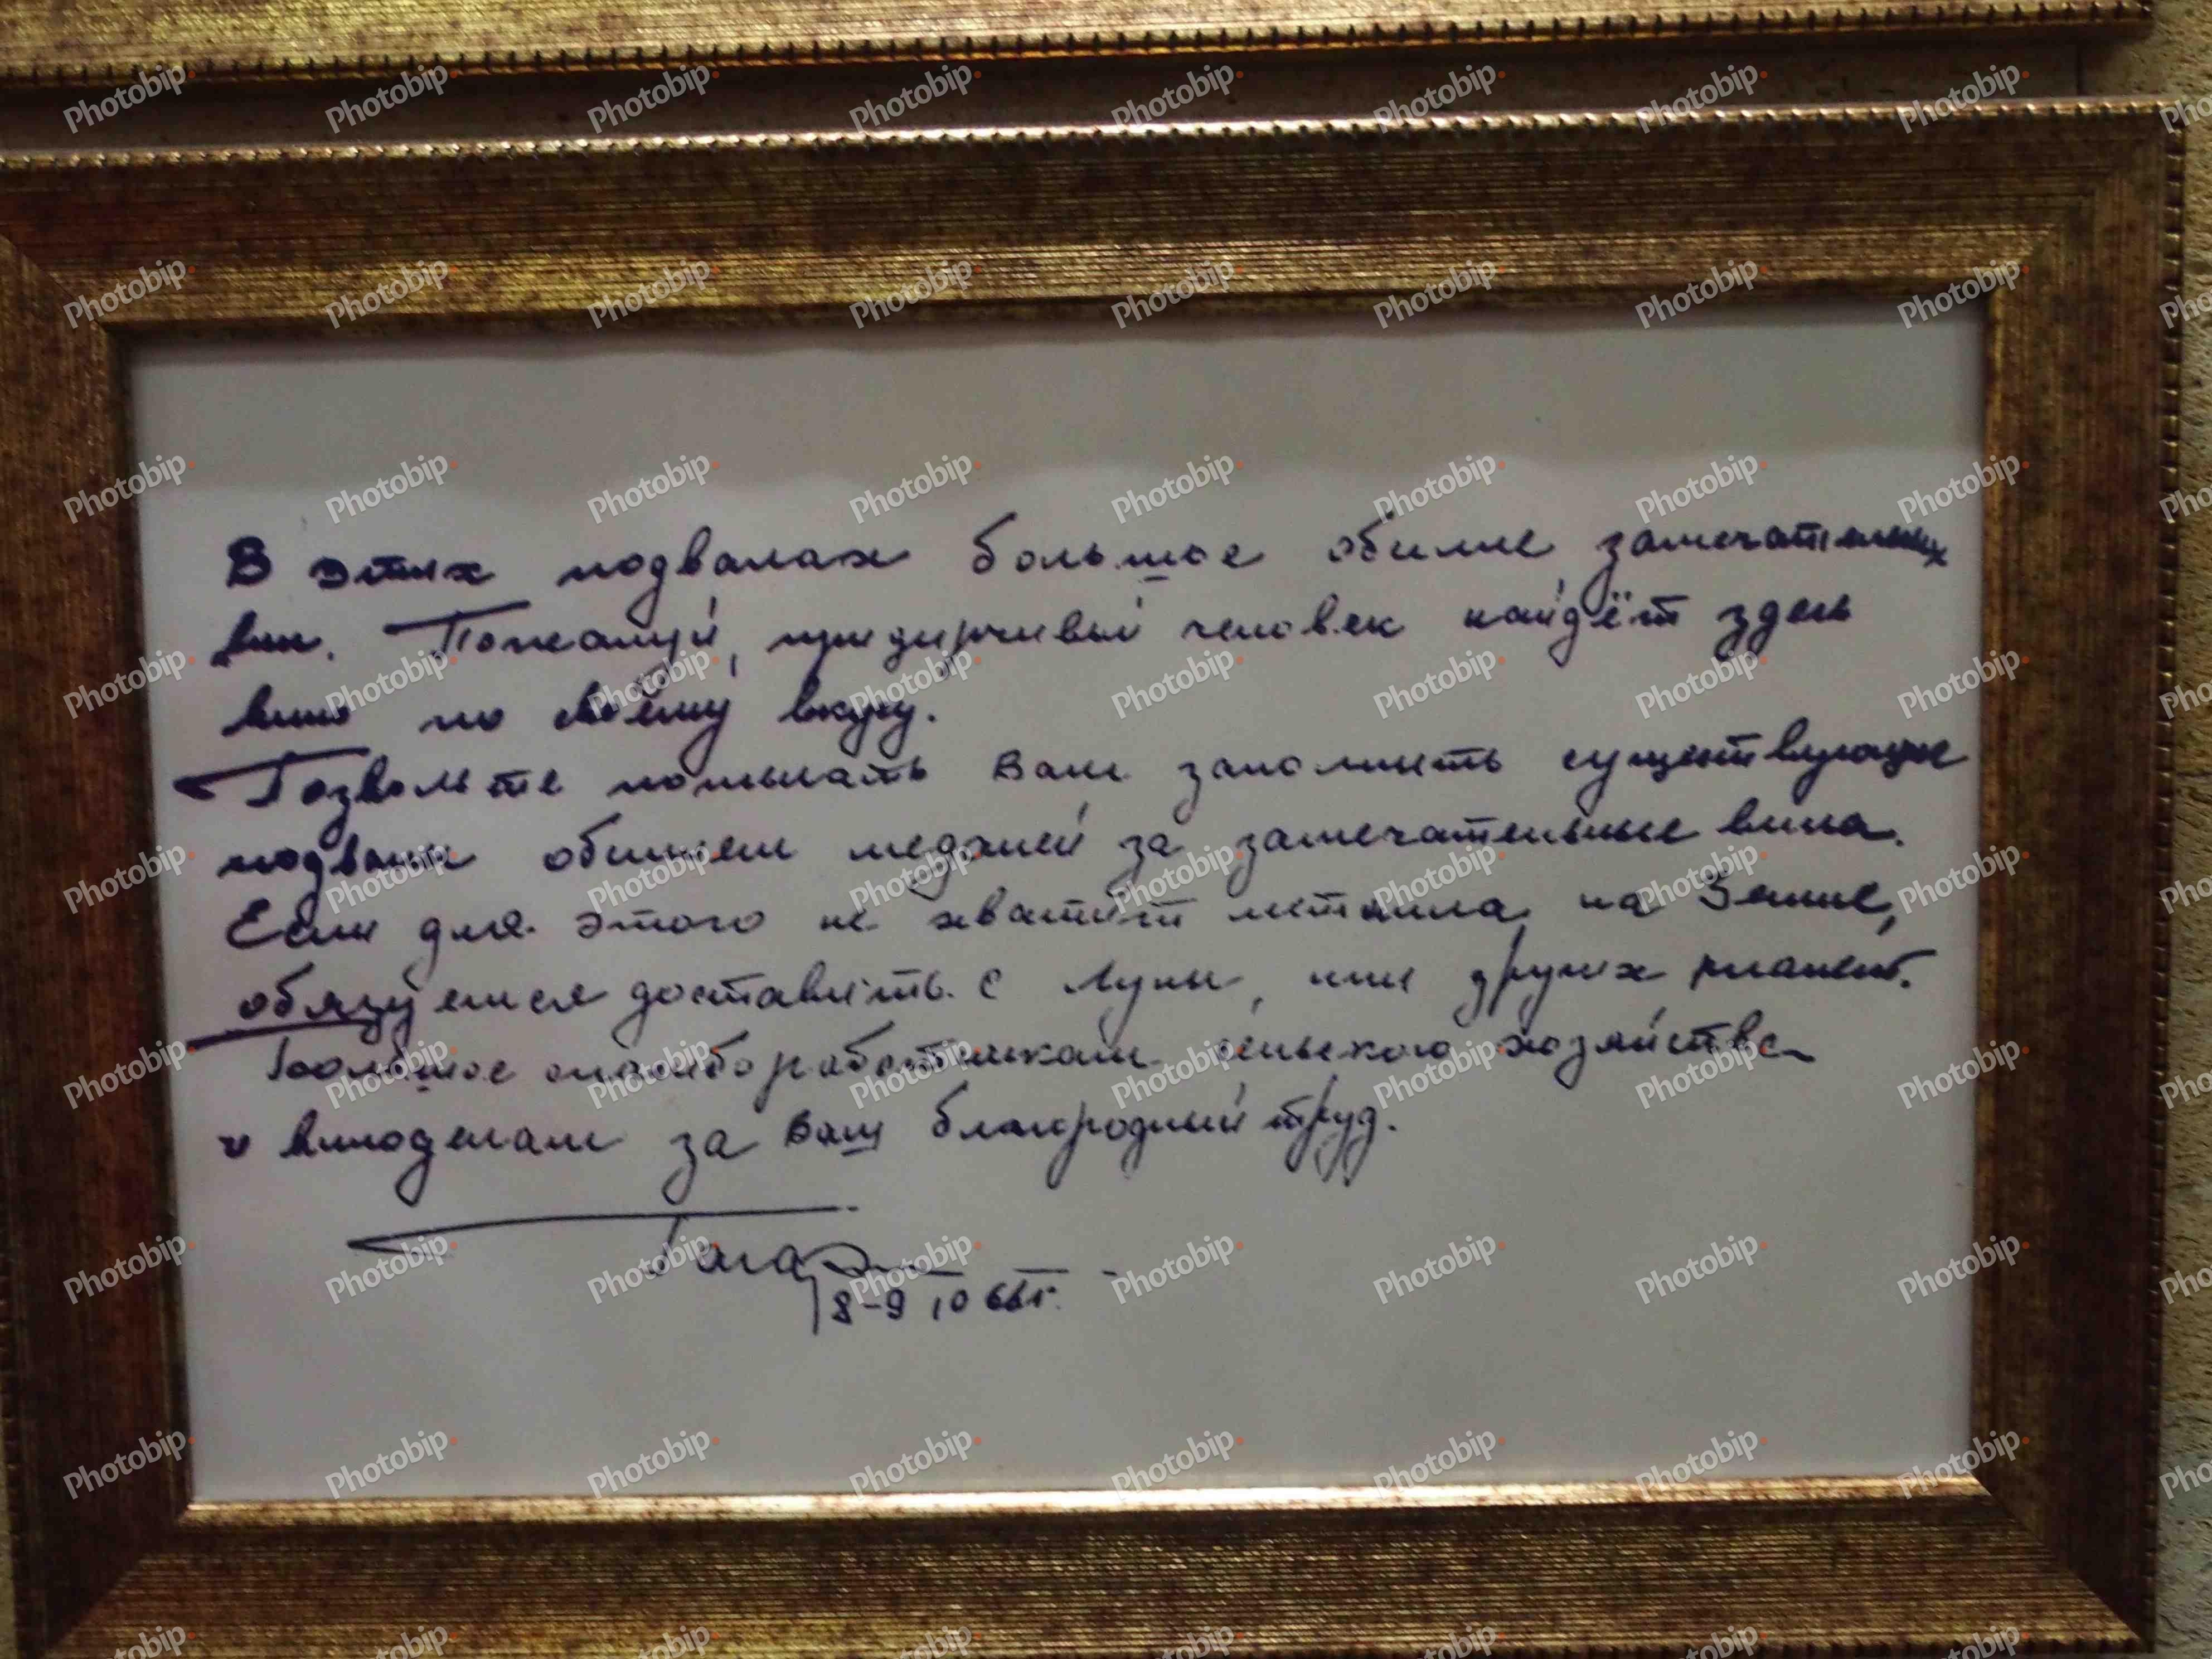 В этих подвалах большое обилие замечательных
вин. Пожалуй, придирчивый человек найдёт здесь
вино по своему вкусу.
Позвольте пожелать Вам заполнить существующие
подвалы обилием медалей за замечательные вина.
Если для этого не хватит металла на Земле,
обязуемся доставить с Луны, или других планет.
Большое спасибо работникам сельского хозяйства
и виноделам за Ваш благородный труд.
8-9 10 66г.
Photobip